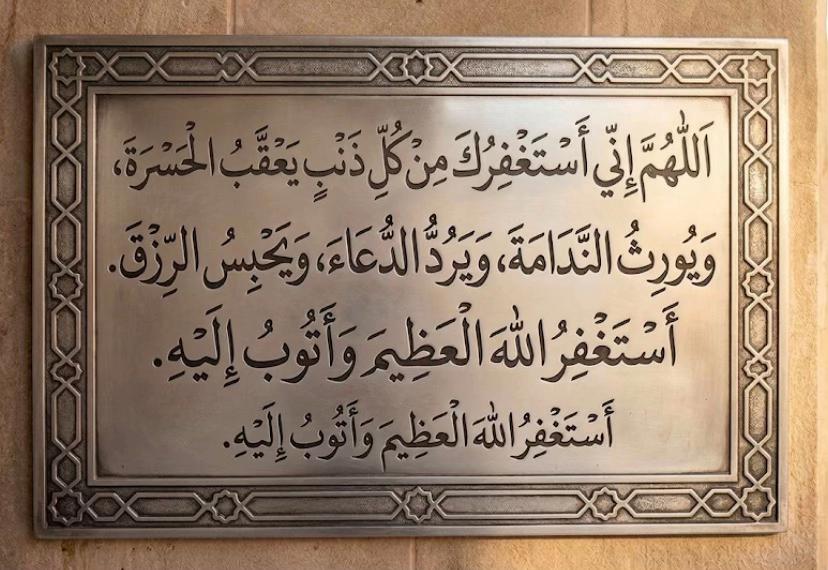 اَللّٰهُمَّ إِنِّي أَسْتَغْفِرُكَ مِنْ كُلِّ ذَنْبٍ يَعْقَبُ الْحَسْرَةَ،
وَيُورِثُ النَّدَامَةَ، وَيَرُدُّ الدُّعَاءَ، وَيَحْبِسُ الرِّزْقَ.
أَسْتَغْفِرُ اللّٰهَ الْعَظِيمَ وَأَتُوبُ إِلَيْهِ.
أَسْتَغْفِرُ اللّٰهَ الْعَظِيمَ وَأَتُوبُ إِلَيْهِ.